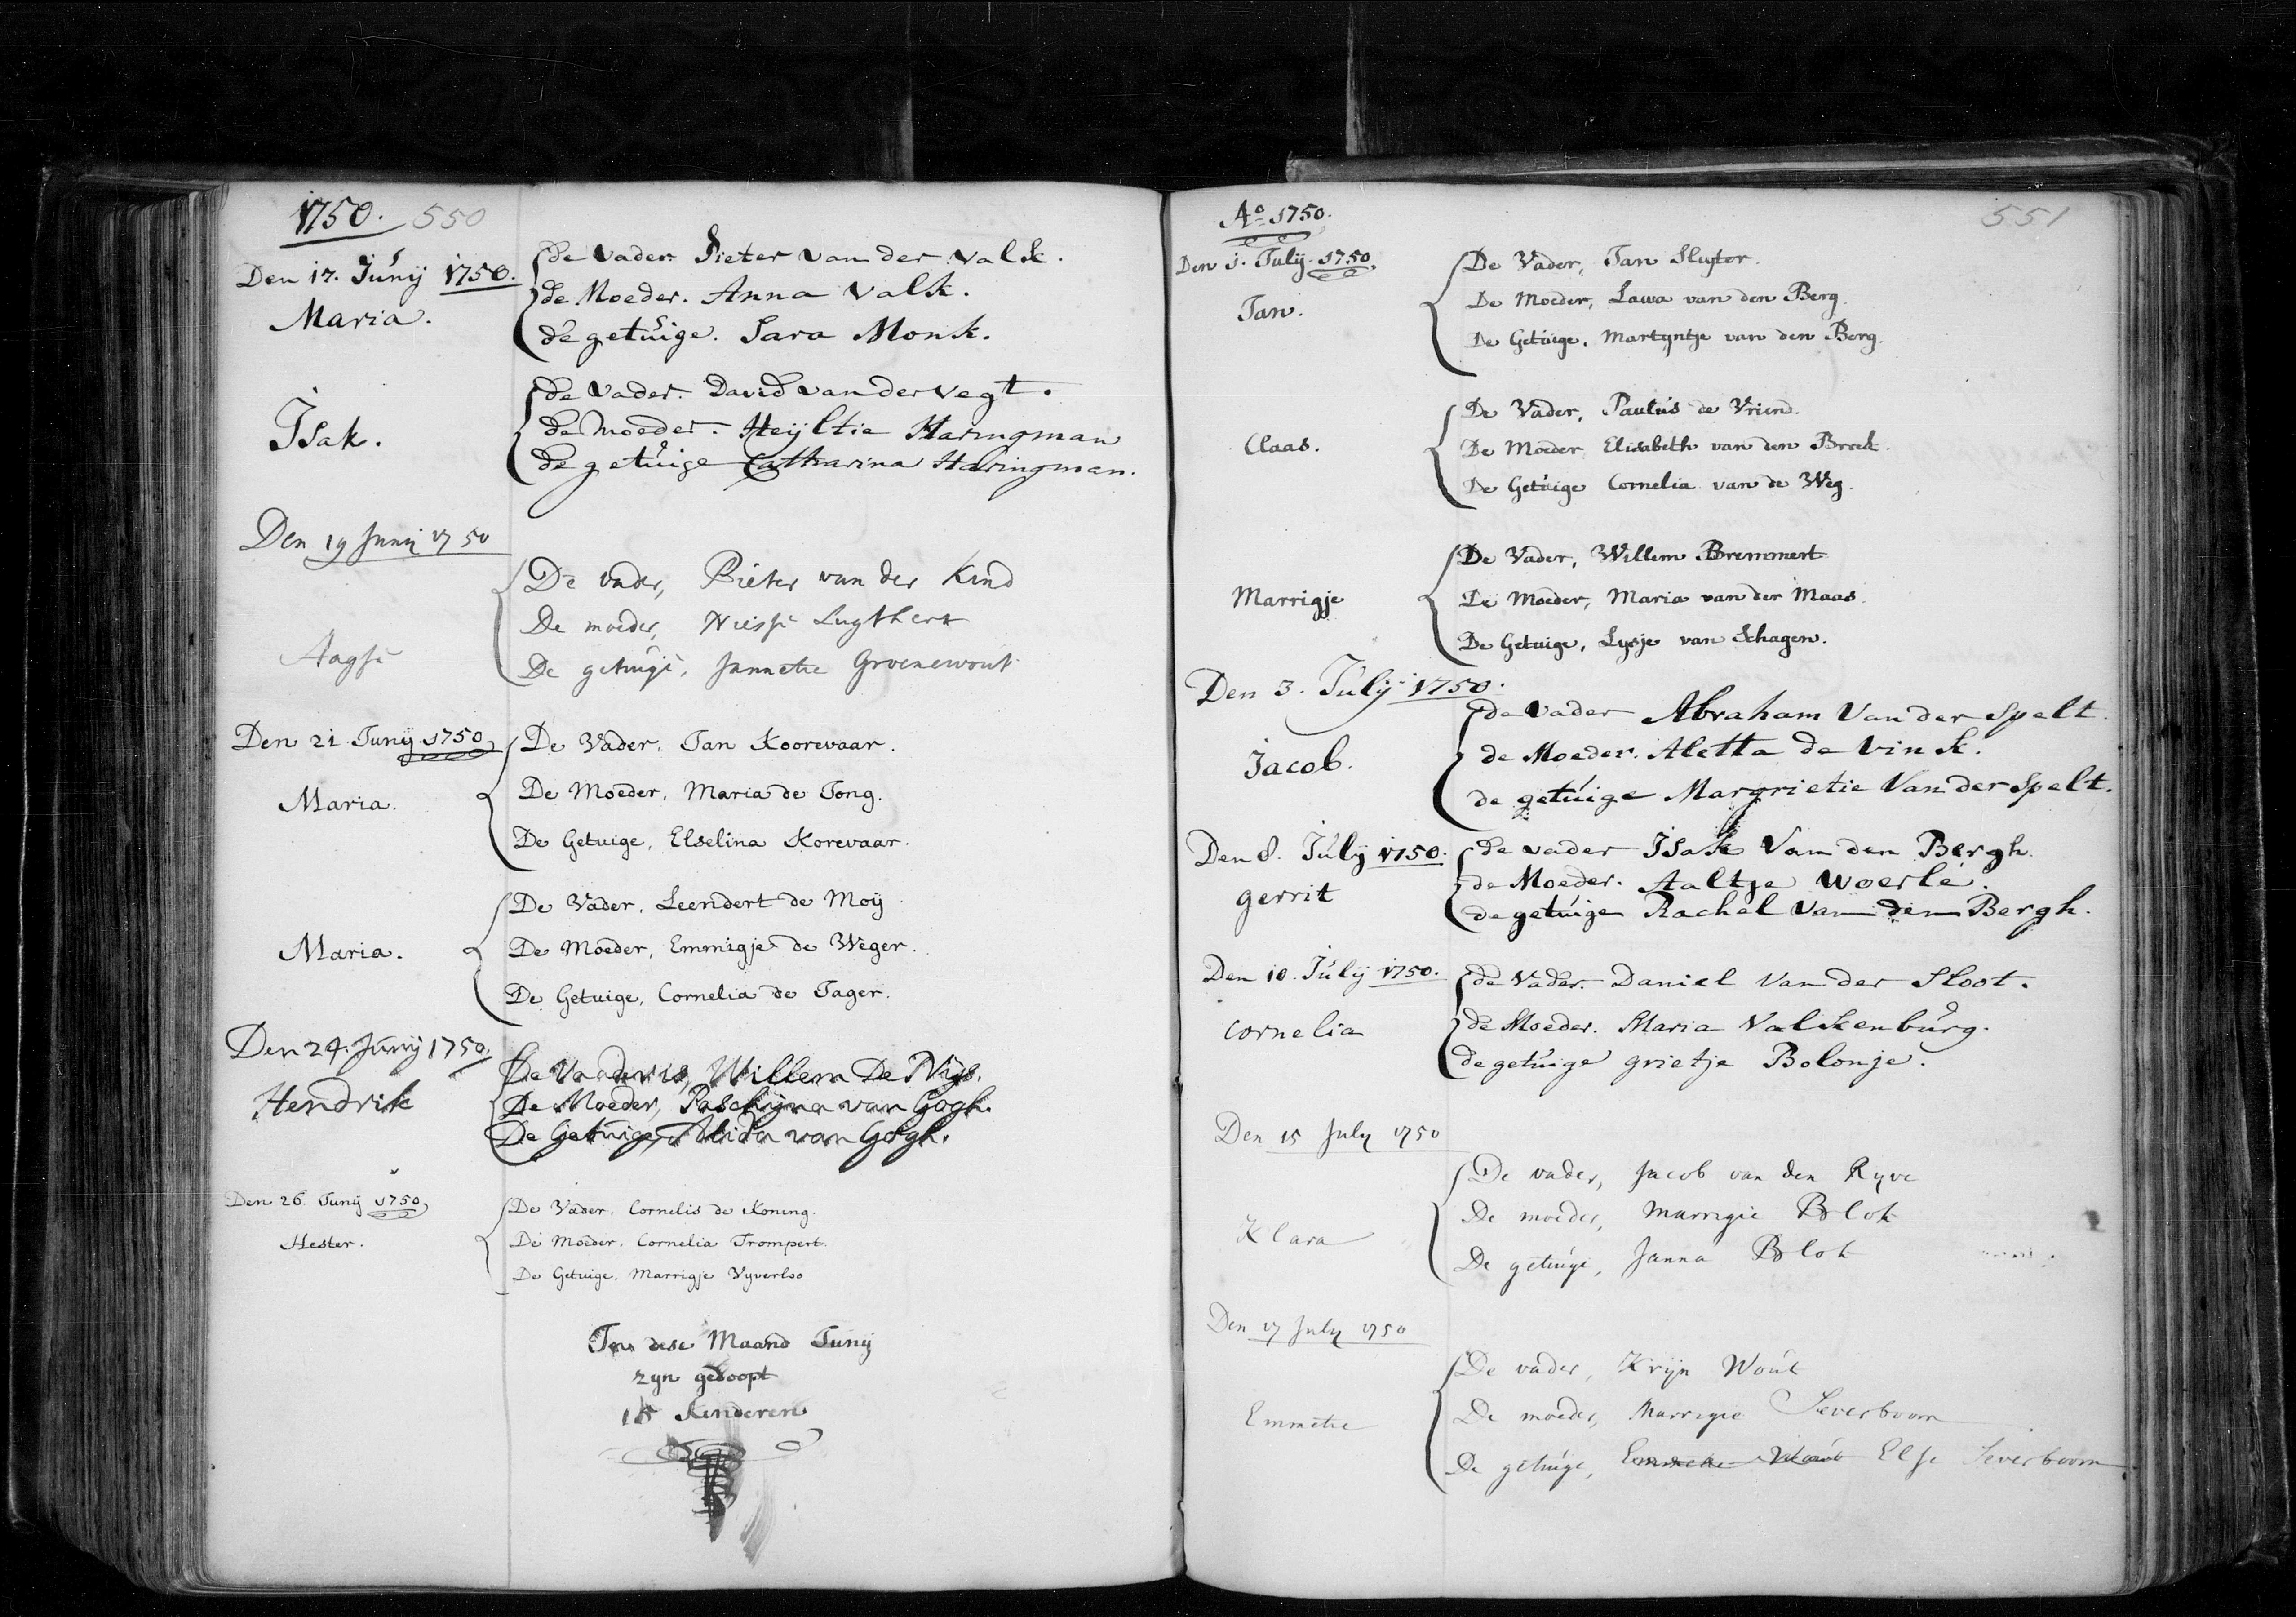 1750. 550
Den 17. Junij 1750.
Maria.
de Vader. Pieter van der valk.
de Moeder. Anna Valk.
de getuige. Sara Monk.
Isak.
de Vader. David van der Vegt.
de Moeder. Heijltie Haringman
de getuige Catharina Haringman.
Den 19 Junij 1750
Aagje
De vader, Pieter van der Kind
De moeder,
De getuige, Jannetie Groenewout
Den 21 Junij 1750
Maria.
De Vader, Jan Koorevaar.
De Moeder, Maria de Jong.
De Getuige, Elselina Korevaar.
Maria.
De Vader, Leendert de Moij
De Moeder, Emmigje de Weger.
De Getuige, Cornelia de Jager.
Den 24. Junij 1750.
Hendrik
De Vader is, Willem De Nijs.
De Moeder, Paschijna van Gogh.
De Getuige, Alida van Gogh.
Den 26. Junij 1750
Hester.
De Vader, Cornelis de Koning.
De Moeder, Cornelia Trompert.
De Getuige, Marrigje Vyverloo
In dese Maand Junij
zyn gedoopt
Kinderen
Ao 1750. 551
Den 1. Julij. 1750.
Jan.
De Vader, Jan Sluyter.
De Moeder, Lawa van den Berg.
De Getuige, Martyntje van den Berg.
Claas.
De Vader, Paulus de Vriend.
De Moeder Elisabeth van den Broek.
De Getuige Cornelia van de Weg.
Marrigje
De Vader, Willem Bremmert
De Moeder, Maria van der Maas.
De Getuige, Lysje van Schagen.
Den 3. Julij 1750.
Jacob.
de Vader Abraham Van der Spelt.
de Moeder. Aletta de Vink.
de getuige Margrietie Van der Spelt.
Den 8. Julij 1750.
gerrit
de vader Isak Van den Bergh.
de Moeder. Aaltje Woerle.
de getuige Rachel Van den Bergh.
Den 10. Julij 1750.
Cornelia
de Vader. Daniel Van der Sloot.
de Moeder. Maria Valkenburg.
de getuige grietje Bolonje.
Den 15 July 1750
Klara
De vader, Jacob van den Ryve
De moeder, Marrigie Blok
De getuige, Janna Blok
Den 17 July 1750
Emmetie
De vader, Krijn Wout
De moeder, Marrigie Severboom
De getuige, Emmetie Wout Elsje Severboom